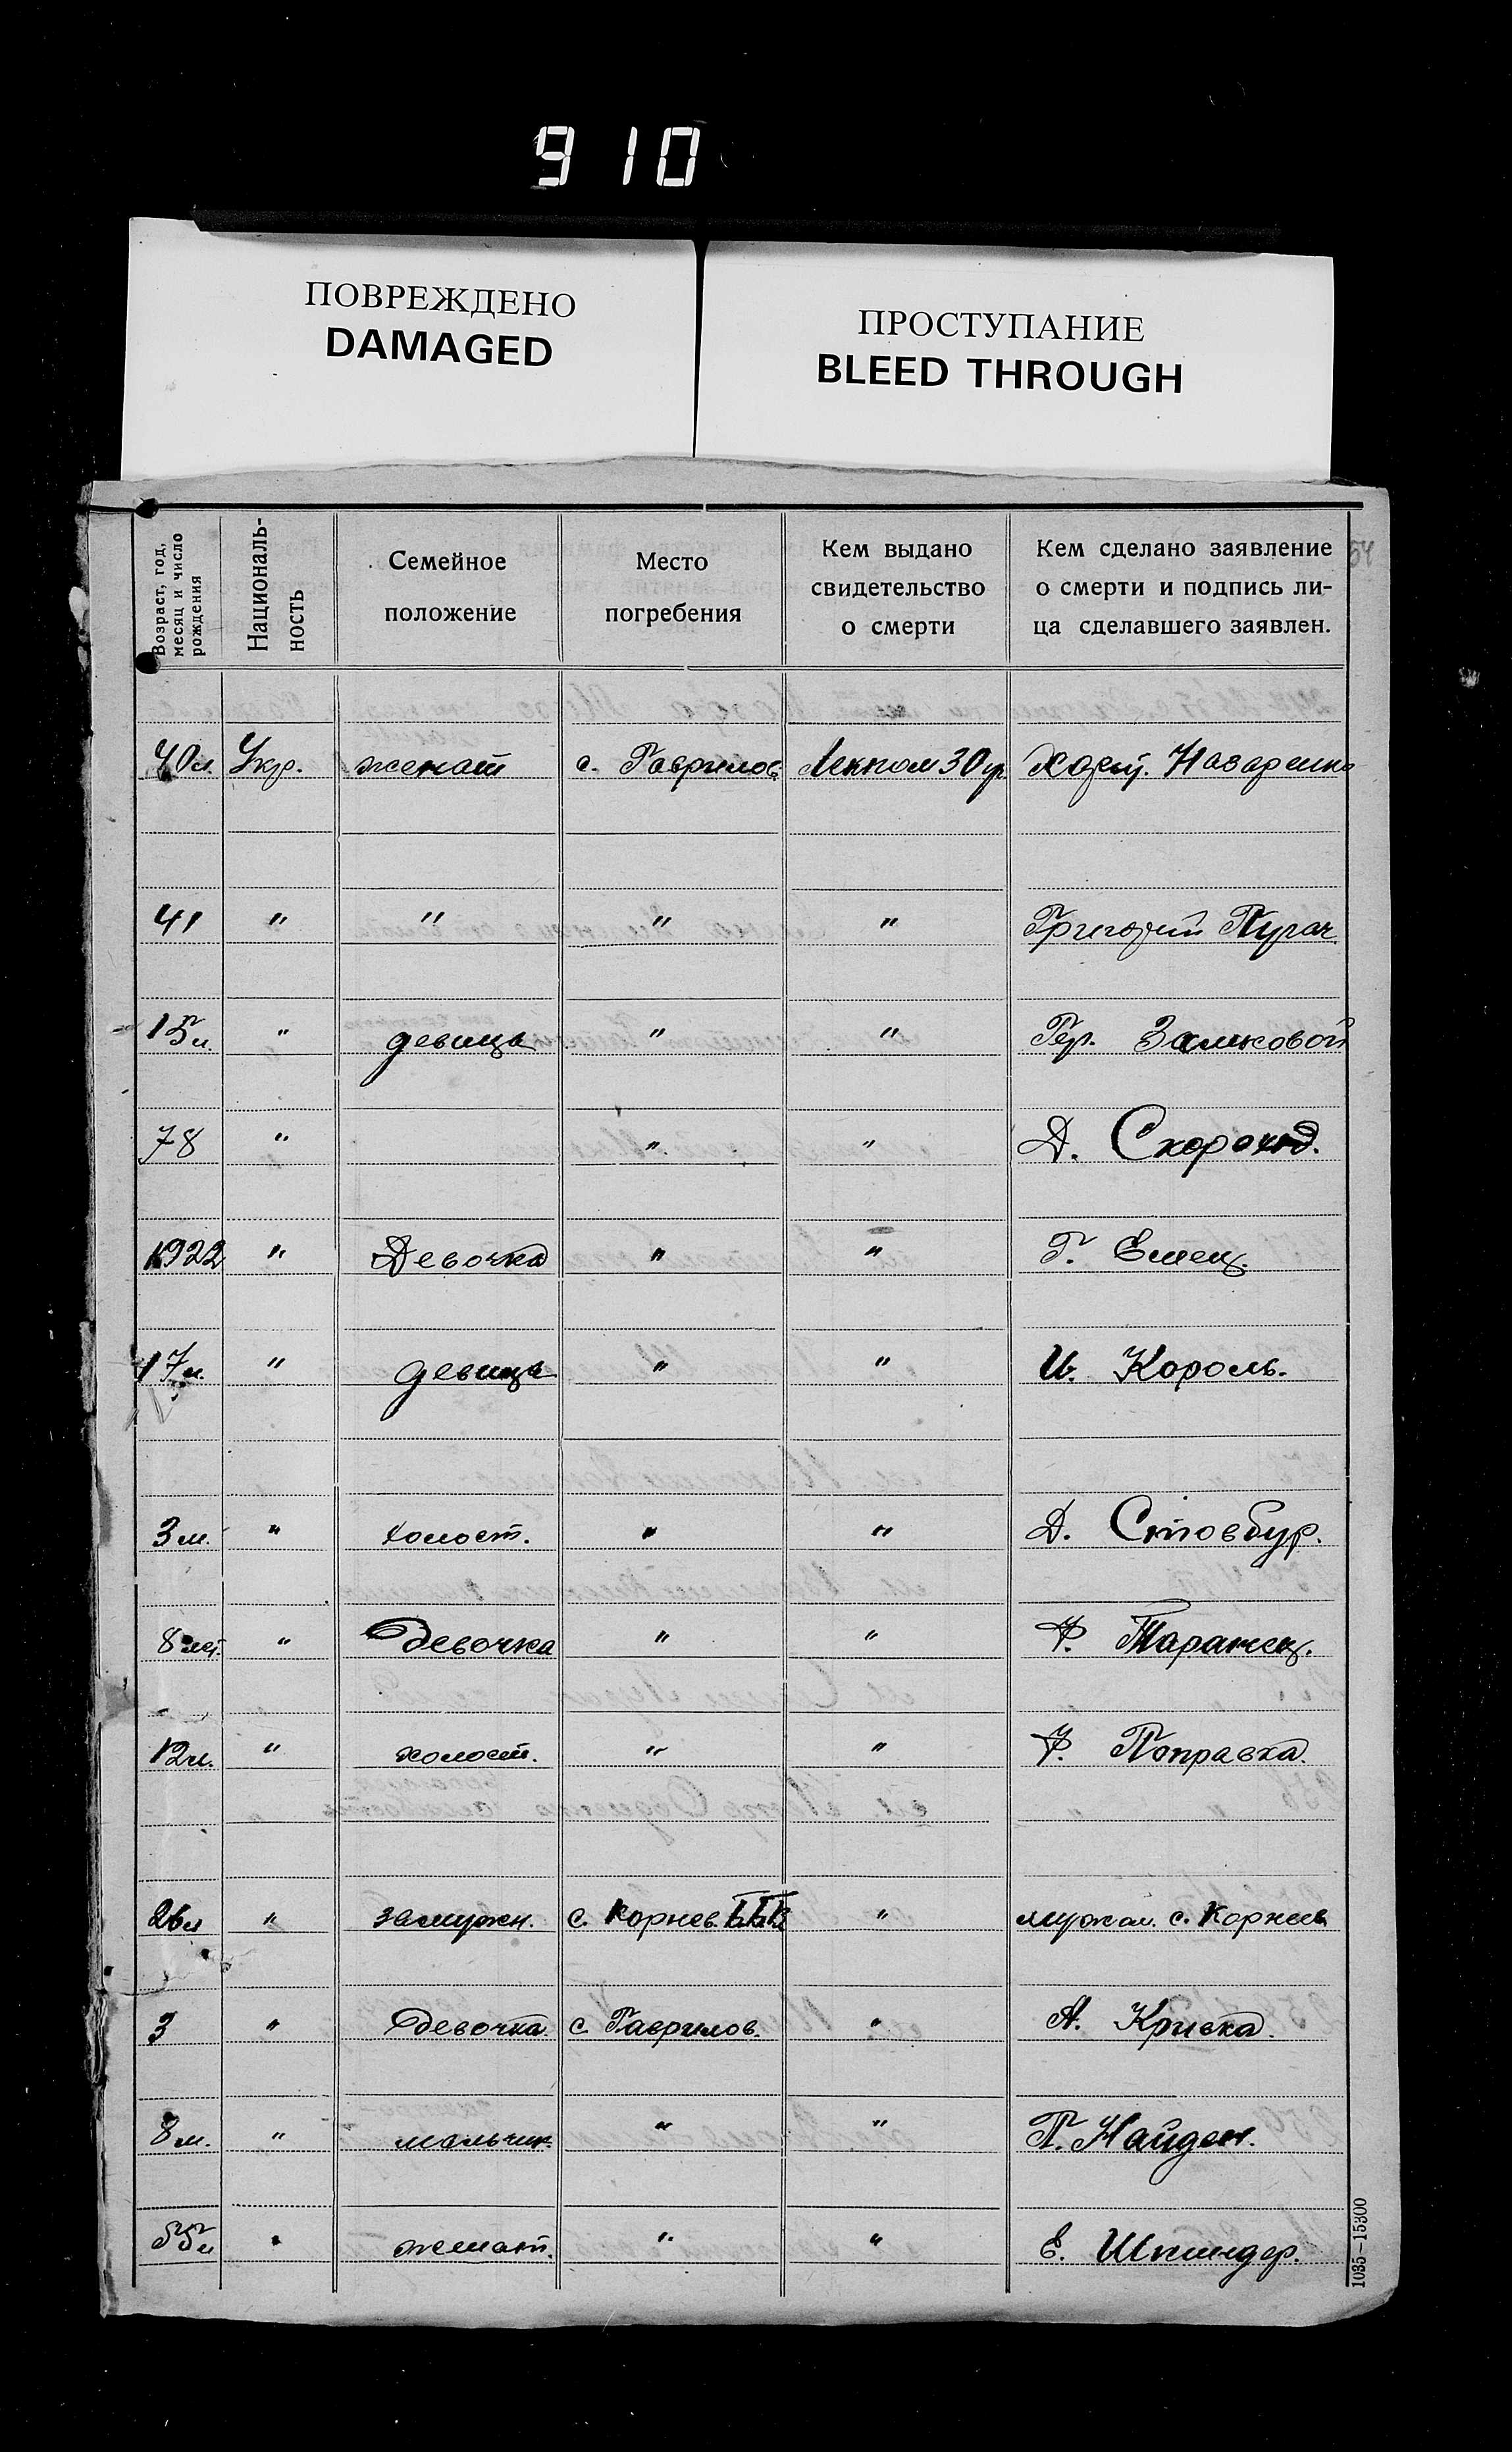 910
ПОВРЕЖДЕНО
DAMAGED
ПРОСТУПАНИЕ
BLEED THROUGH
Возраст, год, месяц и число рождения
Националь-ность
Семейное положение
Место погребения
Кем выдано свидетельство о смерти
Кем сделано заявление о смерти и подпись ли-ца сделавшего заявлен.
54
40л. Укр. женат с. Гаврилов. Лекпом 30 Назаренко
41 " " " " Григорий Пугач
15л. " девица " " Замковой
78 " " " Д. Скороход.
1922 " Девочка " " Г. Емец.
17л. " девица " " И. Король.
3м. " холост. " " Д. Стовбур.
8 " Девочка " " Таранец.
12л. " холост. " " Поправка.
26л " замужн. с. Корнев. " мужем. с. Корнев
3 " девочка. с Гаврилов. " А. Кривка.
8м. " мальчик. " " П. Найден.
55л " женат. " " Е. Шкиндер.
1035-15300